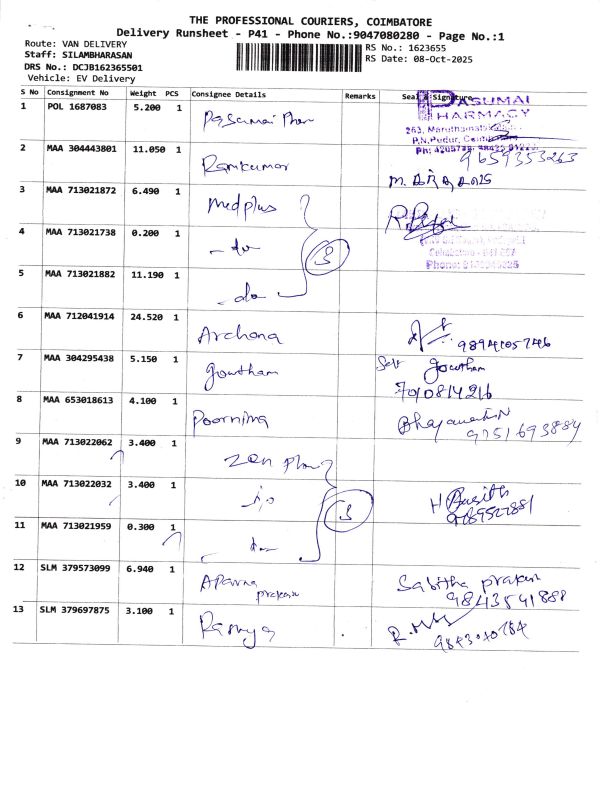 THE PROFESSIONAL COURIERS, COIMBATORE
Delivery Runsheet - P41 - Phone No.:9047080280 - Page No.:1
Route: VAN DELIVERY
Staff: SILAMBHARASAN
DRS No.: DCJB162365501
Vehicle: EV Delivery
RS No.: 1623655
RS Date: 08-Oct-2025
S No Consignment No Weight PCS Consignee Details Remarks Seal & Signature
1 POL 1687083 5.200 1
PASUMAI
PHARMACY
2 MAA 304443801 11.050 1 Ramkumar 9659353263
3 MAA 713021872 6.490 1 Medplus
4 MAA 713021738 0.200 1 - do
3
5 MAA 713021882 11.190 1 - do
6 MAA 712041914 24.520 1 Archana
7 MAA 304295438 5.150 1 Gowtham Gowtham
7010814216
8 MAA 653018613 4.100 1 Poornima
9751693884
9 MAA 713022062 3.400 1 Zen
10 MAA 713022032 3.400 1
3
11 MAA 713021959 0.300 1
12 SLM 379573099 6.940 1 Aparna Sabitha prakash
prakash 9843541888
13 SLM 379697875 3.100 1 Ramya